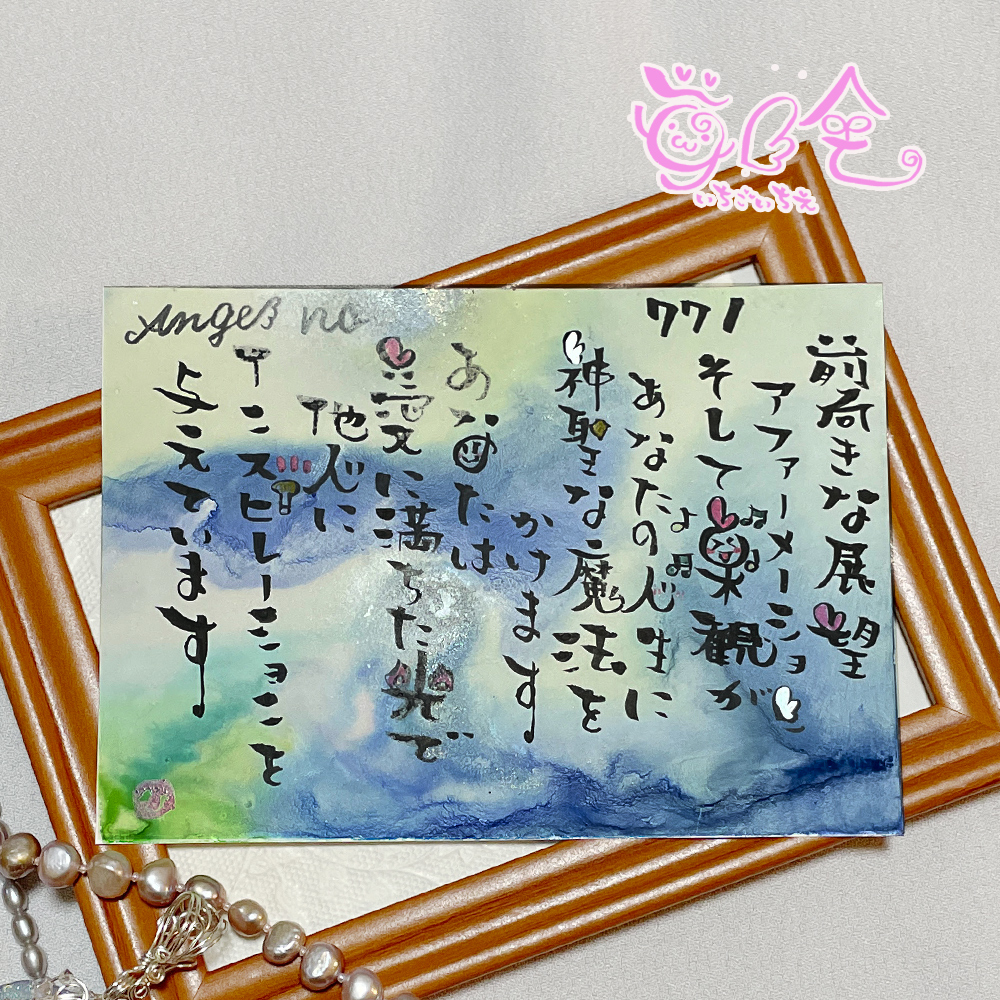 Angel no
771
前向きな展望
アファーメーション
そして楽観が
あなたの人生に
神聖な魔法を
かけます
あなたは
愛に満ちた光で
他人に
インスピレーションを
与えています
いちごいちえ